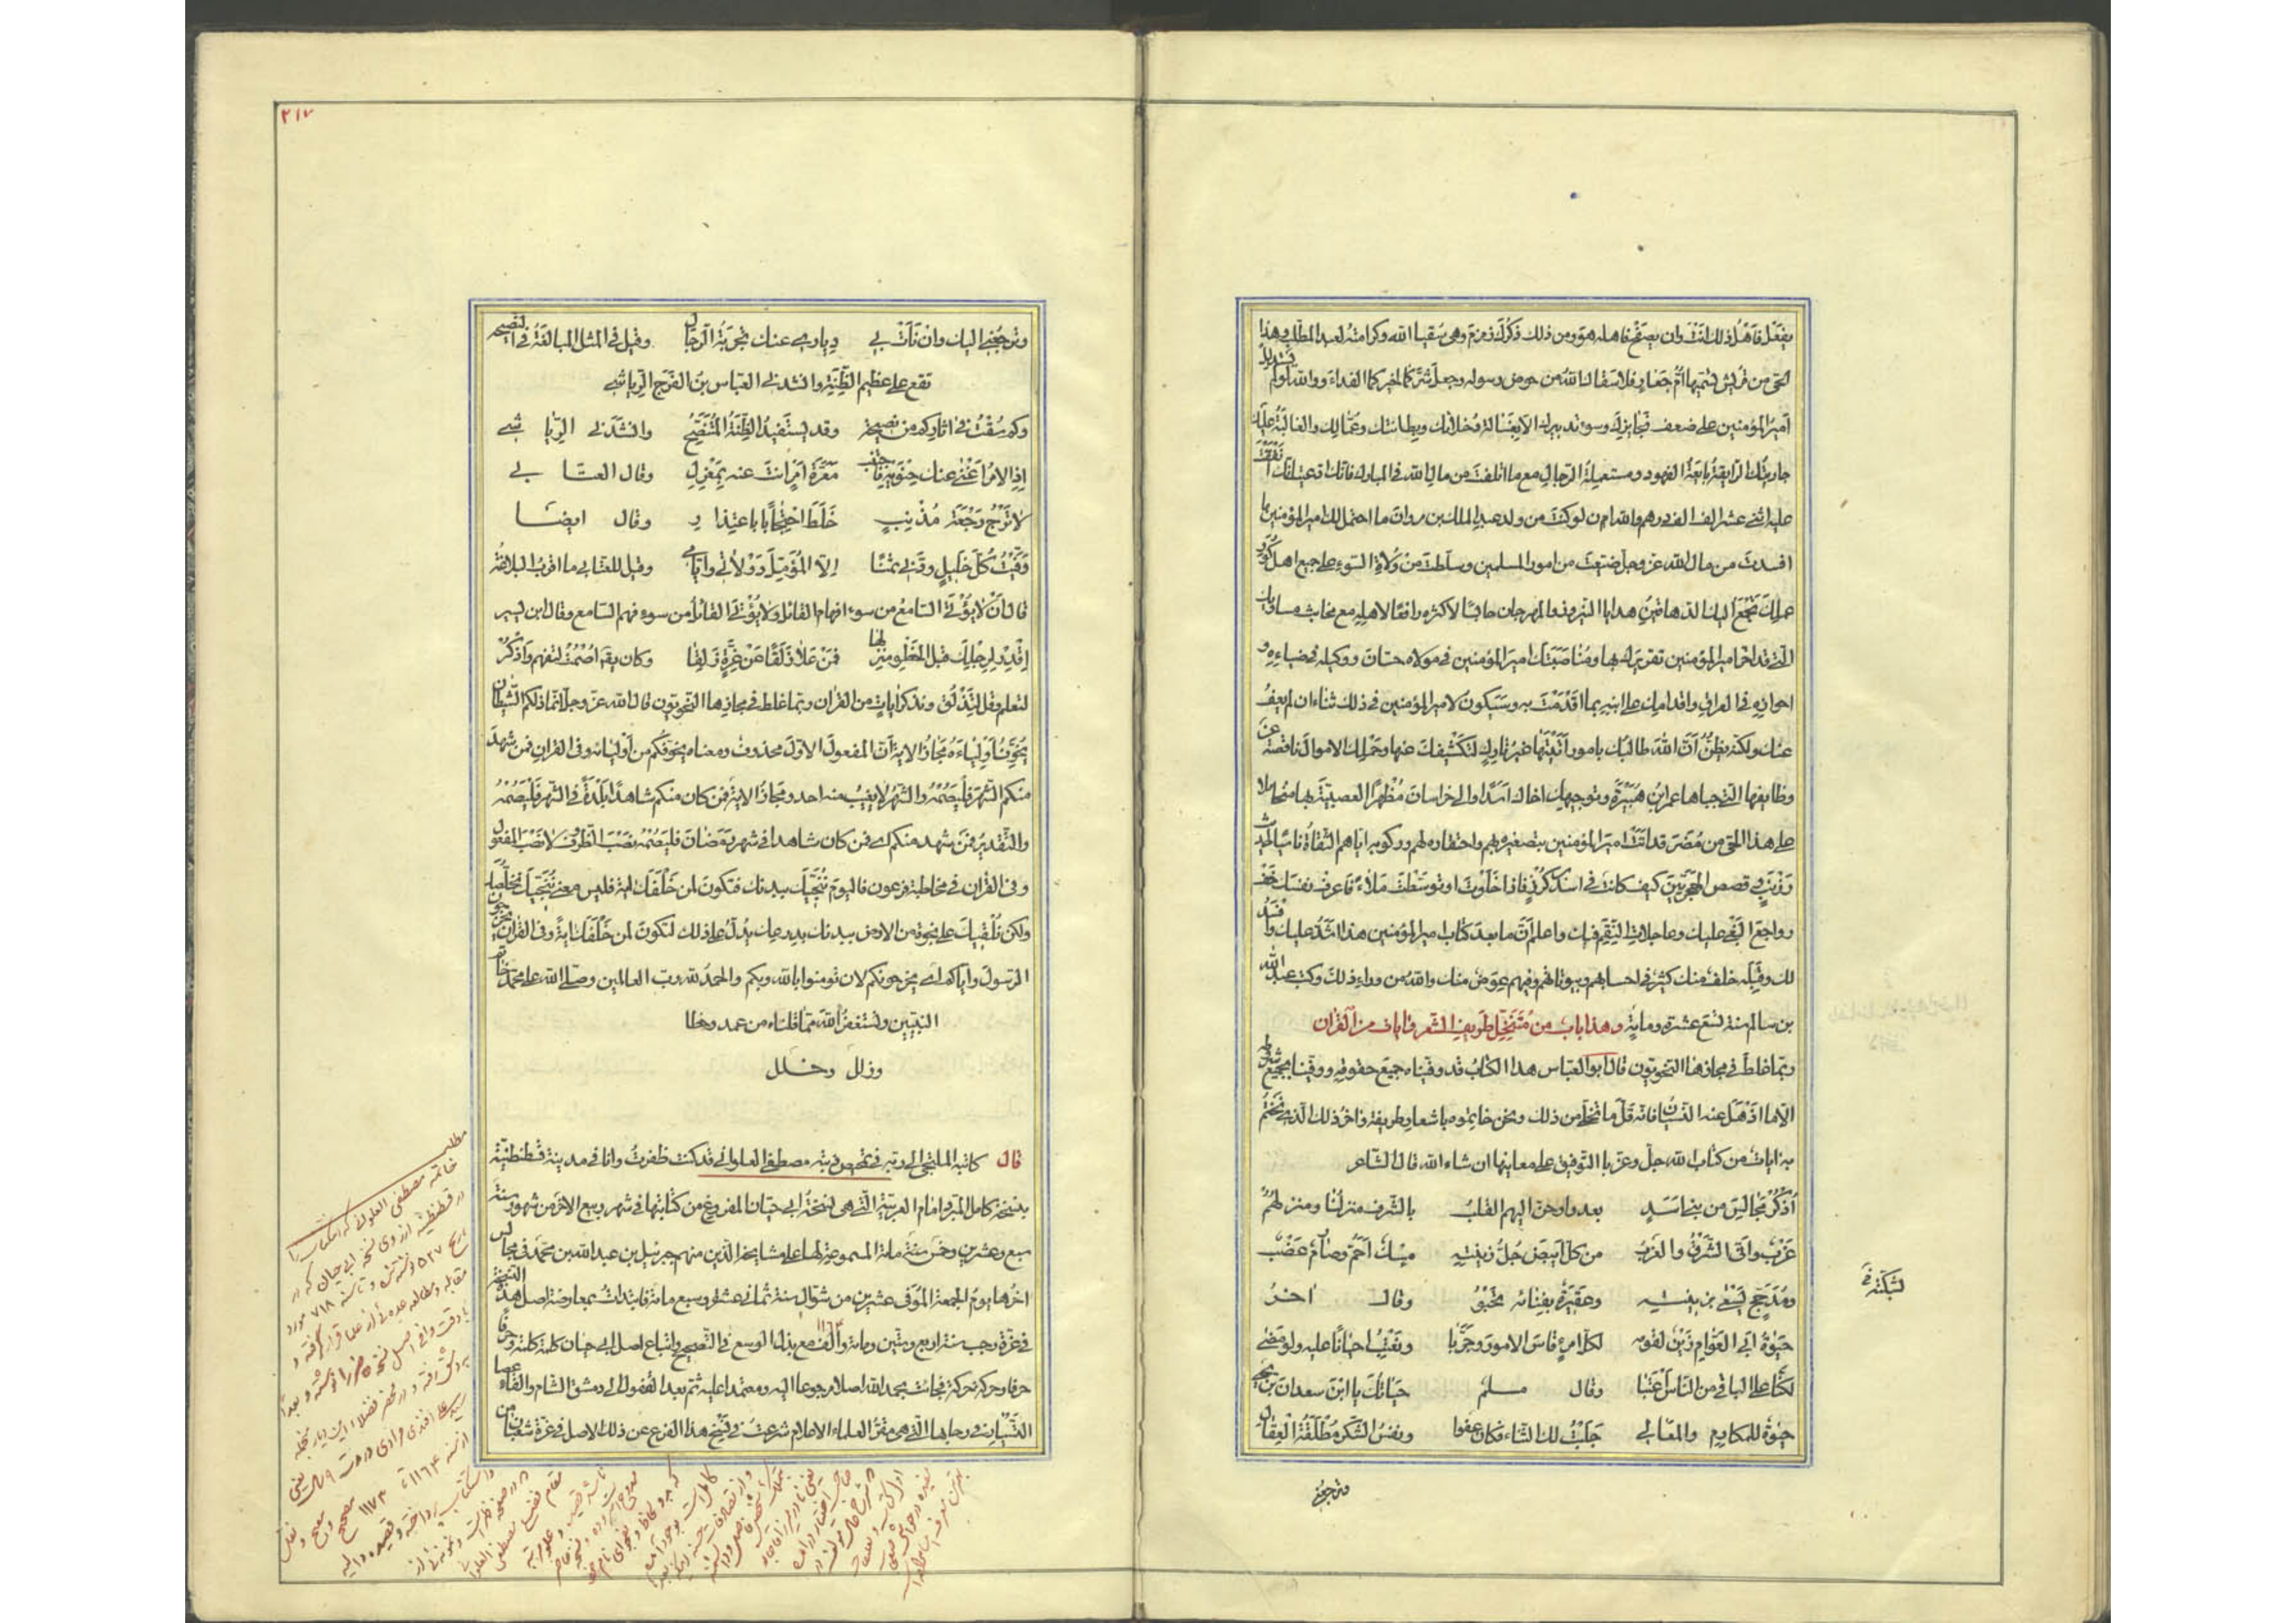 يفعل فاهل ذلك انت وان يصفح فاهله هو ومن ذلك ذكرك زمزم وهي سقيا الله وكرامته لعبد المطلب وهذا
الحى من قريش تسميها ام جعار فلا سقاك الله من حوض رسوله وجعل شركما لخيركما الفداء ووالله لو لم يستدلل
امير المؤمنين على ضعف نحايزك وسوء تدبيرك الا بفسالة دخلائك وبطانتك وعمالك والغالبة عليك
جاريتك الرايقة بايعة الفهود ومستعملة الرجال مع ما اتلفت من مال الله في المبارك فانك ادعيت انك انفقت
عليه اثنى عشر الف الف درهم والله ان لو كنت من ولد عبد الملك بن مروان ما احتمل لك امير المؤمنين ما
افسدت من مال الله عز وجل وضيعت من امور المسلمين وسلطت من ولاة السوء على جميع اهل كور
عملك تجمع اليك الدهاقين هدايا النيروز والمهرجان حابسا لاكثره رافعا لاقله مع مخابث مساويك
التى قد اخر امير المؤمنين تقريرك بها ومناصبتك امير المؤمنين في مولاه حسان ووكيله في ضياعه و
احوازه في العراق واقدامك على ابنه بما اقدمت به وسيكون لامير المؤمنين في ذلك نبأ ان لم يعف
عنك ولكنه يظن ان الله طالبك بامور اتيتها غير تارك لتكشيفك عنها وحملك الاموال ناقصة عن
وظايفها التى جباها عمر بن هبيرة وتوجيهك اخاك اسدا الى خراسان مظهرا العصبية بها متحاملا
على هذا الحى من مضر قد اتت امير المؤمنين بتصغيره بهم واحتقاره لهم وركوبه اياهم الثقاة ناسيا لحديث
زرنب وقصص الهجريين كيف كانت في اسد بن كرز فاذا خلوت او توسطت ملاء فاعرف نفسك وخف
رواجع البغى عليك وعاجلات النقم فيك واعلم ان ما بعد كتاب امير المؤمنين هذا اشد عليك وافسد
لك وقبله خلف منك كثير في احسابهم وبيوتاتهم وفيهم عوض منك والله من وراء ذلك وكتب عبد الله
بن سالم سنة تسع عشرة ومائة وهذا باب من متنخل طريف الشعر وايات من القرآن
ربما غلط في مجازها النحويون قال ابو العباس هذا الكتاب قد وفيناه جميع حقوقه ووفينا بجميع شروطه
الا ما اذهل عنه النسيان فانه قل ما نخلو من ذلك ونحن خاتموه باشعار طريفة واخر ذلك الذى نختم
به ايات من كتاب الله جل وعز بالتوفيق على معانيها ان شاء الله قال الشاعر
أذكر مجالس من بنى اسد بعدوا وحن اليهم القلب بالشرف منزلنا ومنزلهم
غرب وانى الشرق والغرب من كل ابيض جل زينته مسك احم وصارم عضب
ومدجج يسعى بشكته وعقيرة بفنائه تحبو وقال اخر
لشكته في
حيوة ابى العوام زين لقومه لكل امرئ قاس الامور وجربا ونعتب احيانا عليه ولو مضى
لكنا على الباقى من الناس اعتبا وقال مسلم حياتك يا ابن سعدان بن يحيى
حيوة للمكارم والمعالى جلبت لك الثناء فكان عفوا ونفس الشكر مطلقة العقال
وترجعنى
٢١٧
وترجعنى اليك وان نأت بى ديارى عنك تجربة الرجال وقيل في المثل المبالغة في النصيحة
تقع على عظيم الظنة وانشدنى العباس بن الفرج الرياشى
وكم سقت في اثاركم من نصيحة وقد يستفيد الظنة المتنصح وانشدنى الرياشى
اذ الامر اغنى عنك حنويه فاجتنب معرة امر انت عنه بمعزل وقال العتابى
لا ترج رجعة مذنب خلط احتجاجا باعتذار وقال ايضا
وفيت كل خليل ودنى ثمنا الا المؤمل دولاتى وايامى وقيل للعتابى ما اقرب البلاغة
قال ان لا يؤتى السامع من سوء افهام القائل ولا يؤتى القائل من سوء فهم السامع وقال ابن يسير
اقدر لرجلك قبل الخطو منزلها فمن علا زلقا عن غرة زلقا وكان يقال اصمت لتفهم واذكر
لتعلم وقل لتذلق ونذكر ايات من القران ربما غلط في مجازها النحويون قال الله عز وجل انما ذلكم الشيطان
يخوف اولياءه مجاز الاية ان المفعول الاول محذوف ومعناه يخوفكم من اوليائه وفى القران فمن شهد
منكم الشهر فليصمه والشهر لا يغيب عنه احد ومجاز الاية فمن كان منكم شاهدا بلدة في الشهر فليصمه
والتقدير فمن شهد منكم اى فمن كان شاهدا في شهر رمضان فليصمه نصب الظرف لا نصب المفعول
وفى القران في مخاطبة فرعون فاليوم ننجيك ببدنك فتكون لمن خلفك اية فليس معنى ننجيك نخلصك
ولكن نلقيك على نجوة من الارض ببدنك بدرعك يدل على ذلك لتكون لمن خلفك اية وفى القران يخرجون
الرسول واياكم اى يخرجونكم لان تومنوا بالله ربكم والحمد لله رب العالمين وصلى الله على محمد خاتم
النبيين ونستغفر الله مما قلناه من عمد وخطا
وزلل وخلل
قال كاتبه الملتجى الى ربه في تمحيص ذنبه مصطفى العلوانى قد كنت ظفرت وانا في مدينة قسطنطنية
بنسخة كامل المبرد امام العربية التى هى نسخة ابى حيان المفروغ من كتابتها في شهر ربيع الاخر من شهور سنة
سبع وعشرين وخمس مائة المسموعة لها على مشايخ الذين منهم جبرئيل بن عبد الله بن محمد في مجالس
اخرها يوم الجمعة الموفى عشرين من شوال سنة ثمانى عشرة وسبع مائة فابتدأت بمعارضة اصل هذه النسخة
في غرة رجب سنة اربع وستين ومائة والف ١١٦٤ مع بذل الوسع في التصحيح واتباع اصل ابى حيان كلمة كلمة وحرفا
حرفا وحركة حركة فجائت بحمد الله اصلا مرجوعا اليه ومعتمدا عليه ثم بعد القفول الى دمشق الشام والقاء عصا
التسيار في رحابها التى هى مقر العلماء الاعلام شرعت في نسخ هذا الفرع عن ذلك الاصل في غرة شعبان من
مطلب
خاتمه مصطفى العلوانى كه اين كتاب را
در قسطنطنيه از روى نسخه ابى حيان كه در
تاريخ ٥٢٧ نوشته شده و تا سنه ٧١٨ مورد
مقابله و مطالعه عده‌ئى از علما قرار گرفته و